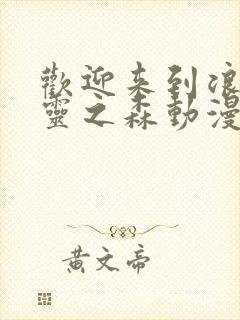 歡迎来到浪
靈之森動漫
黄文帝